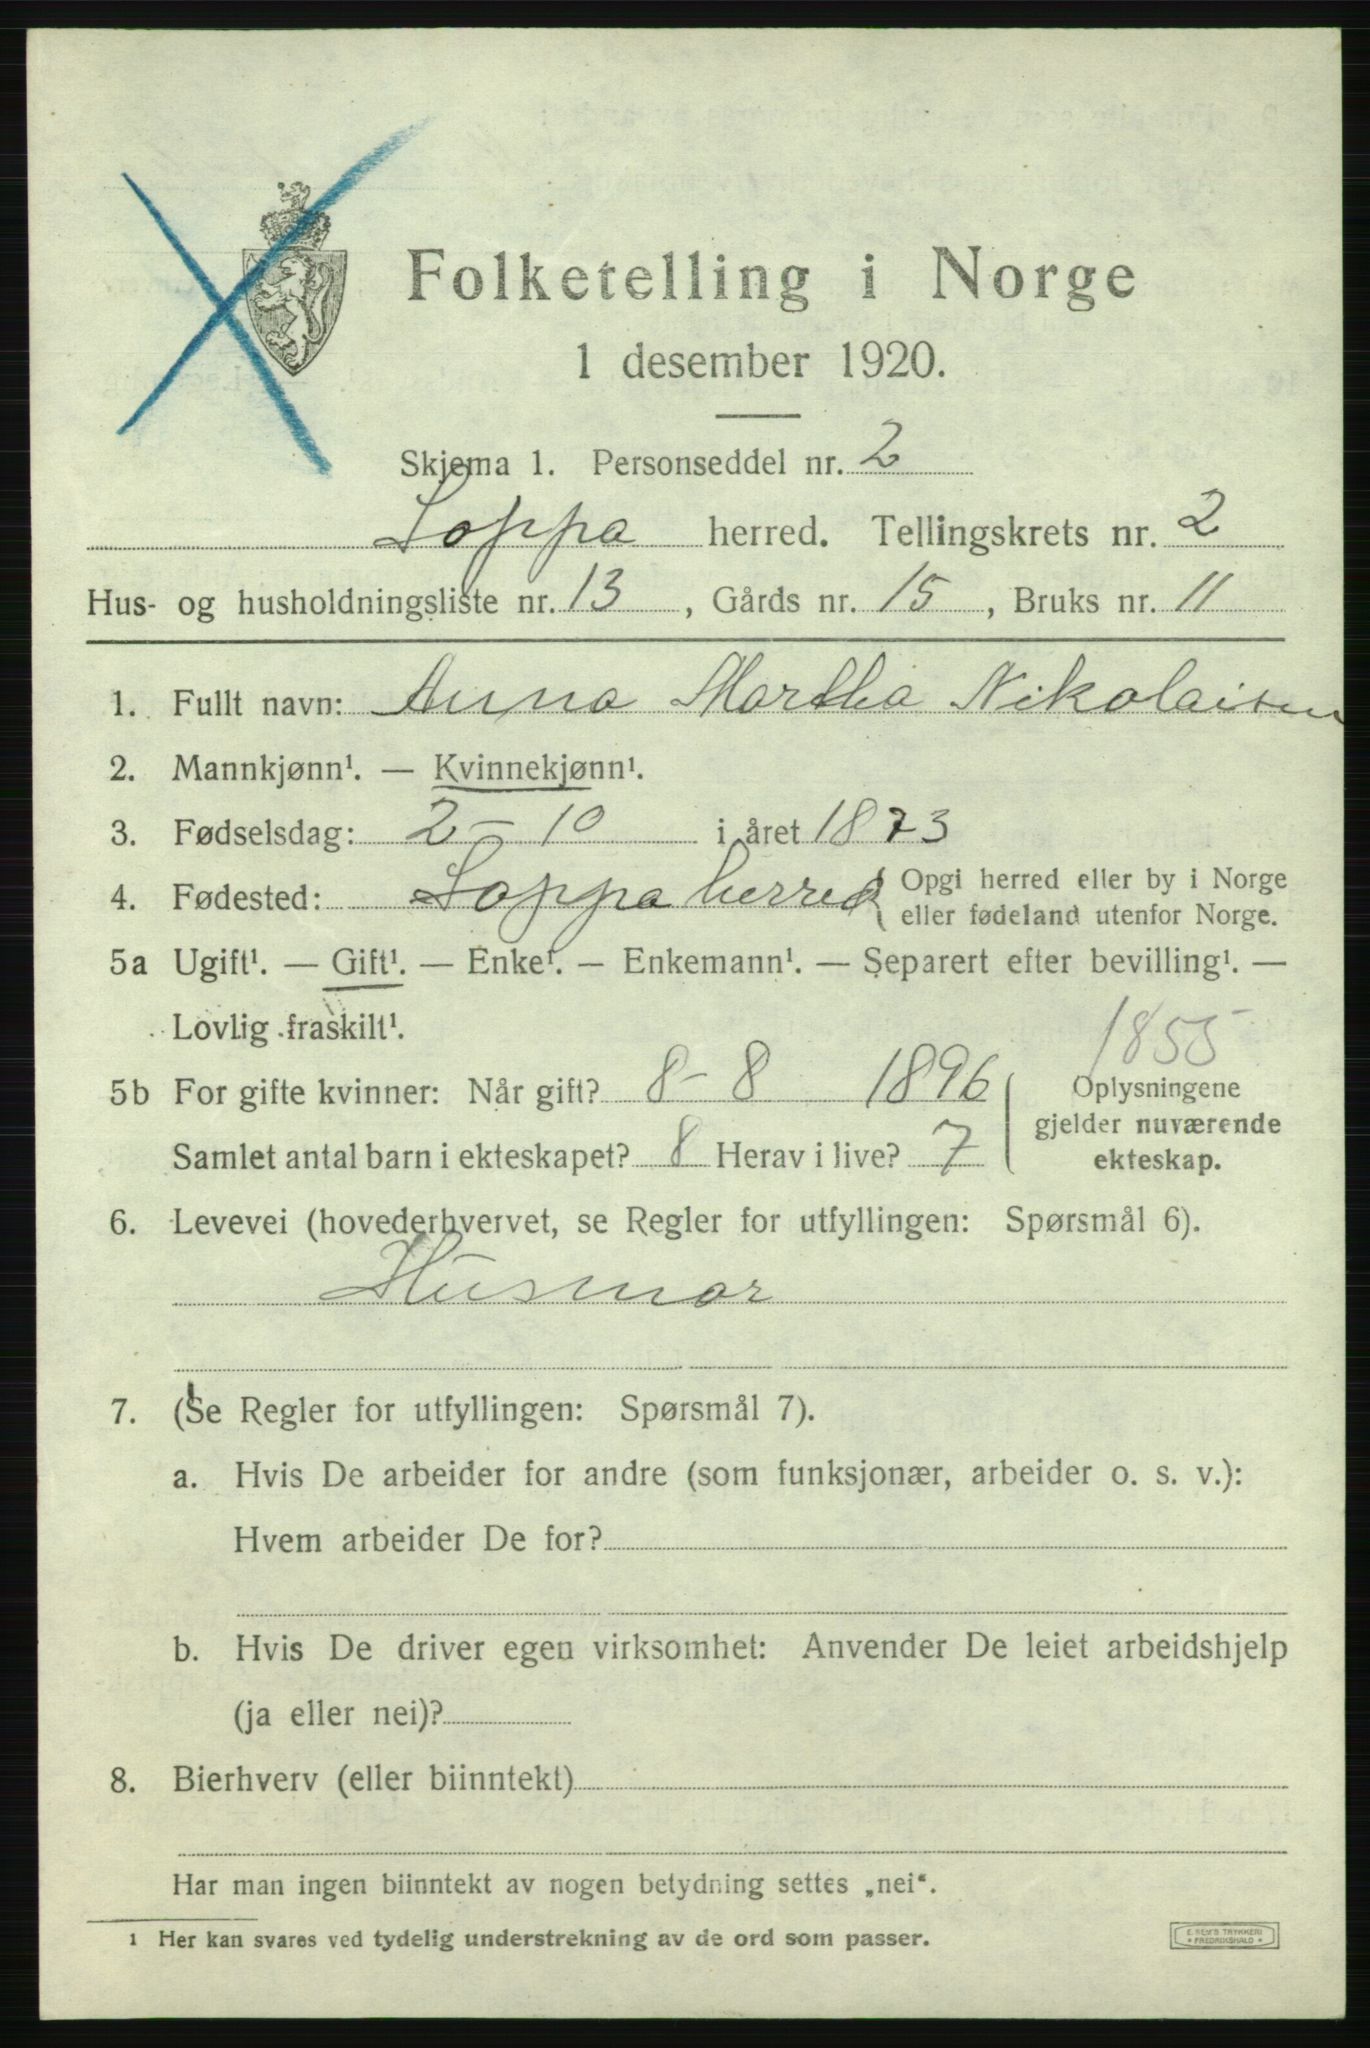 Folketelling i Norge
1 desember 1920.
Skjema 1. Personseddel nr. 2
Loppa herred. Tellingskrets nr. 2
Hus- og husholdningsliste nr. 13, Gårds nr. 15, Bruks nr. 11
1. Fullt navn: Anna Martha Nikolaisen
2. Mannkjønn¹. — Kvinnekjønn¹.
3. Fødselsdag: 2 – 10 i året 1873
4. Fødested: Loppa herred { Opgi herred eller by i Norge
eller fødeland utenfor Norge.
5a Ugift¹. — Gift¹. — Enke¹. — Enkemann¹. — Separert efter bevilling¹. —
Lovlig fraskilt¹.
1855
5b For gifte kvinner: Når gift? 8 – 8 1896
Samlet antal barn i ekteskapet? 8 Herav i live? 7
Oplysningene
gjelder nuværende
ekteskap.
6. Levevei (hovederhvervet, se Regler for utfyllingen: Spørsmål 6).
Husmor
7. (Se Regler for utfyllingen: Spørsmål 7).
a. Hvis De arbeider for andre (som funksjonær, arbeider o. s. v.):
Hvem arbeider De for?
b. Hvis De driver egen virksomhet: Anvender De leiet arbeidshjelp
(ja eller nei)?
8. Bierhverv (eller biinntekt)
Har man ingen biinntekt av nogen betydning settes „nei“.
1 Her kan svares ved tydelig understrekning av de ord som passer.
E. SEM'S TRYKKERI
* FREDRIKSHALD *